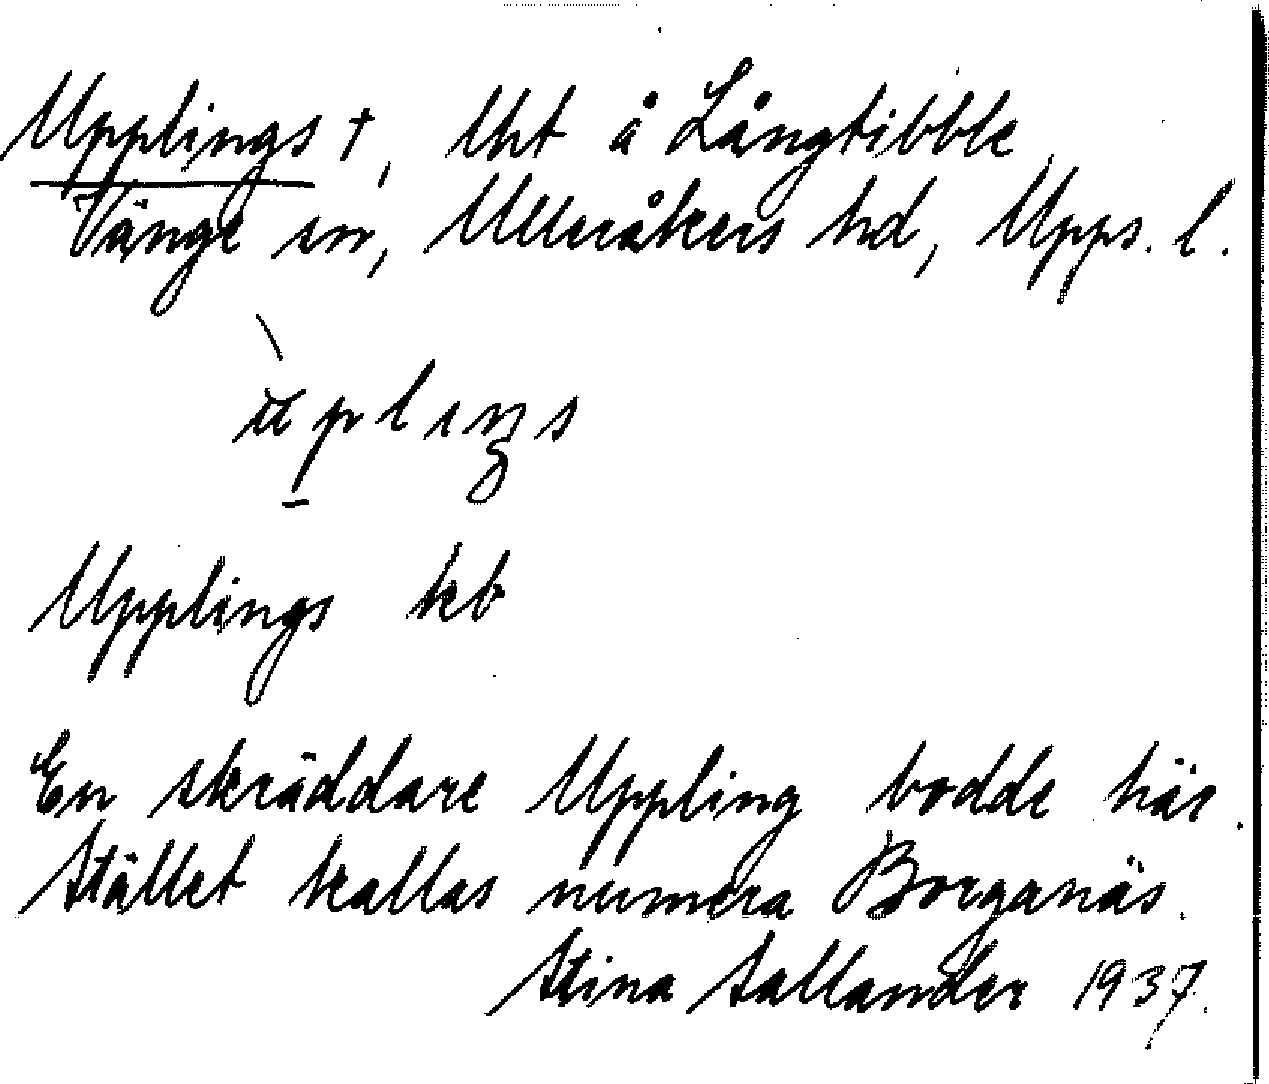 Upplings †, lht å Långtibble,
Vänge sn, Ulleråkers hd, Upps. l.
Upplings kb
En skräddare Uppling bodde här.
Stället kallas numera Borganäs.
Stina Sallander 1937.